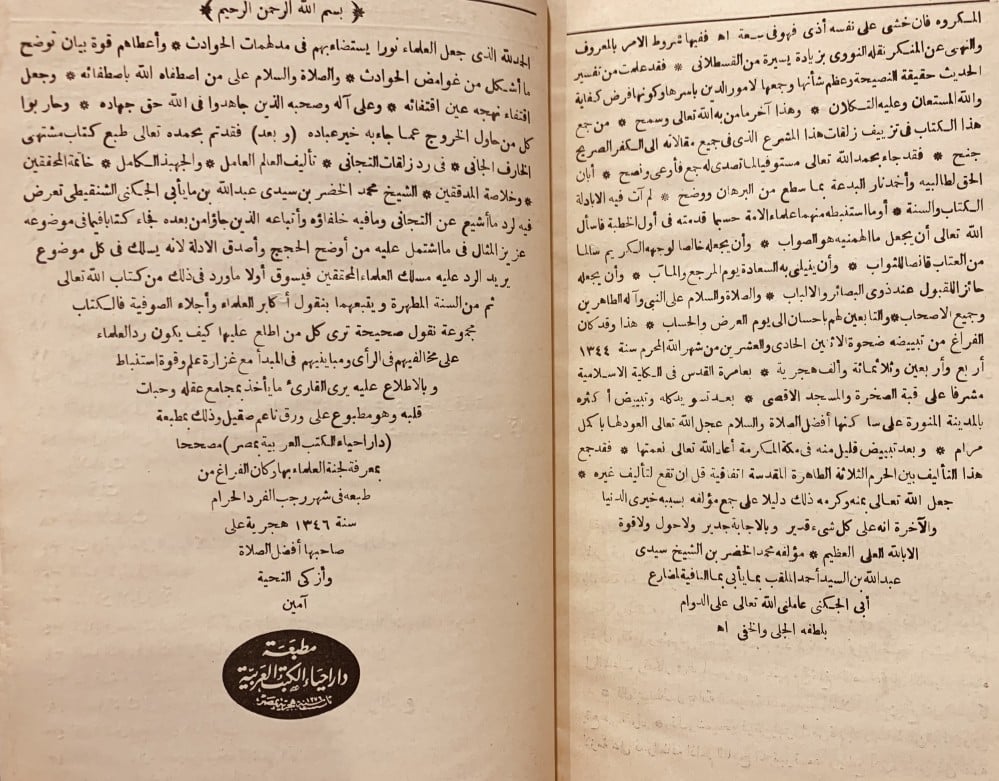 المكروه فان خشى على نفسه أذى فهو فى سعة اه ففيها شروط الامر بالمعروف
والنهى عن المنكر نقله النووى بزيادة يسيرة من القسطلانى * فقد علمت من تفسير
الحديث حقيقة النصيحة وعظم شأنها وجمعها لامور الدين باسرها وكونها فرض كفاية
والله المستعان وعليه التكلان * وهذا آخر ما من به الله تعالى وسمح * من جمع
هذا الكتاب فى تزييف زلقات هذا المشرع الذى فى جميع مقالاته الى الكفر الصريح
جنح * فقد جاء بحمد الله تعالى مستوفيا لما تصدى له جمع فأرعى ونصح * أبان
الحق لطالبيه وأخمد نار البدعة بما سطع من البرهان ووضح * لم آت فيه الا بادلة
الكتاب والسنة * أو ما استنبطه منهما علماء الامة حسبما قدمته فى أول الخطبة فاسأل
الله تعالى أن يجعل ما ألهمنيه هو الصواب * وأن يجعله خالصا لوجهه الكريم سالما
من العتاب قانصا للثواب * وأن ينيلنى به السعادة يوم المرجع والمآب * وأن يجعله
حائزا للقبول عند ذوى البصائر والالباب * والصلاة والسلام على النبى وآله الطاهرين
وجميع الاصحاب * والتابعين لهم باحسان الى يوم العرض والحساب * هذا وقد كان
الفراغ من تبييضه ضحوة الاثنين الحادى والعشرين من شهر الله المحرم سنة ١٣٤٤
أربع وأربعين وثلاثمائة وألف هجرية * بعامرة القدس فى الكلية الاسلامية
مشرفا على قبة الصخرة والمسجد الاقصى * بعد تسويد كله وتبييض أكثره
بالمدينة المنورة على ساكنها أفضل الصلاة والسلام عجل الله تعالى العود لها باكمل
مرام * وبعد تبييض قليل منه فى مكة المكرمة أعاد الله تعالى نعمتها * فقد جمع
هذا التأليف بين الحرم الثلاثة الطاهرة المقدسة اتفاقية قل ان تقع لتأليف غيره *
جعل الله تعالى بمنه وكرمه ذلك دليلا على جمع مؤلفه بسببه خيرى الدنيا
والآخرة انه على كل شىء قدير وبالاجابة جدير ولا حول ولا قوة
الا بالله العلى العظيم * مؤلفه محمد الخضر بن الشيخ سيدى
عبد الله بن السيد أحمد الملقب بمايأبى بما النافية لمضارع
أبى الجكنى عاملنى الله تعالى على الدوام
بلطفه الجلى والخفى اه
﴿ بسم الله الرحمن الرحيم ﴾
الحمد لله الذى جعل العلماء نورا يستضاء بهم فى مدلهمات الحوادث * وأعطاهم قوة بيان توضح
ما أشكل من غوامض الحوادث * والصلاة والسلام على من اصطفاه الله باصطفائه * وجعل
اقتفاء نهجه عين اقتفائه * وعلى آله وصحبه الذين جاهدوا فى الله حق جهاده * وحاربوا
كل من حاول الخروج عما جاء به خير عباده (وبعد) فقد تم بحمده تعالى طبع كتاب مشتهى
الخارف الجانى * فى رد زلقات التجانى * تأليف العالم العامل * والجهبذ الكامل * خاتمة المحققين
* وخلاصة المدققين * الشيخ محمد الخضر بن سيدى عبد الله بن مايأبى الجكنى الشنقيطى تعرض
فيه لرد ما أشيع عن التجانى وما فيه خلفاؤه وأتباعه الذين جاؤا من بعده فجاء كتابا فيما فى موضوعه
عزيز المثال فى ما اشتمل عليه من أوضح الحجج وأصدق الادلة لانه يسلك فى كل موضوع
يريد الرد عليه مسلك العلماء المحققين فيسوق أولا ما ورد فى ذلك من كتاب الله تعالى
ثم من السنة المطهرة ويتبعهما بنقول أكابر العلماء وأجلاء الصوفية فالكتاب
مجموعة نقول صحيحة ترى كل من اطلع عليها كيف يكون رد العلماء
على مخالفيهم فى الرأى ومباينيهم فى المبدأ مع غزارة علم وقوة استنباط
وبالاطلاع عليه يرى القارئ ما يأخذ بمجامع عقله وحبات
قلبه وهو مطبوع على ورق ناعم صقيل وذلك بمطبعة
(دار احياء الكتب العربية بمصر) مصححا
بمعرفة لجنة العلماء بها وكان الفراغ من
طبعه فى شهر رجب الفرد الحرام
سنة ١٣٤٦ هجرية على
صاحبها أفضل الصلاة
وأزكى التحية
آمين
مطبعة
دار احياء الكتب العربية